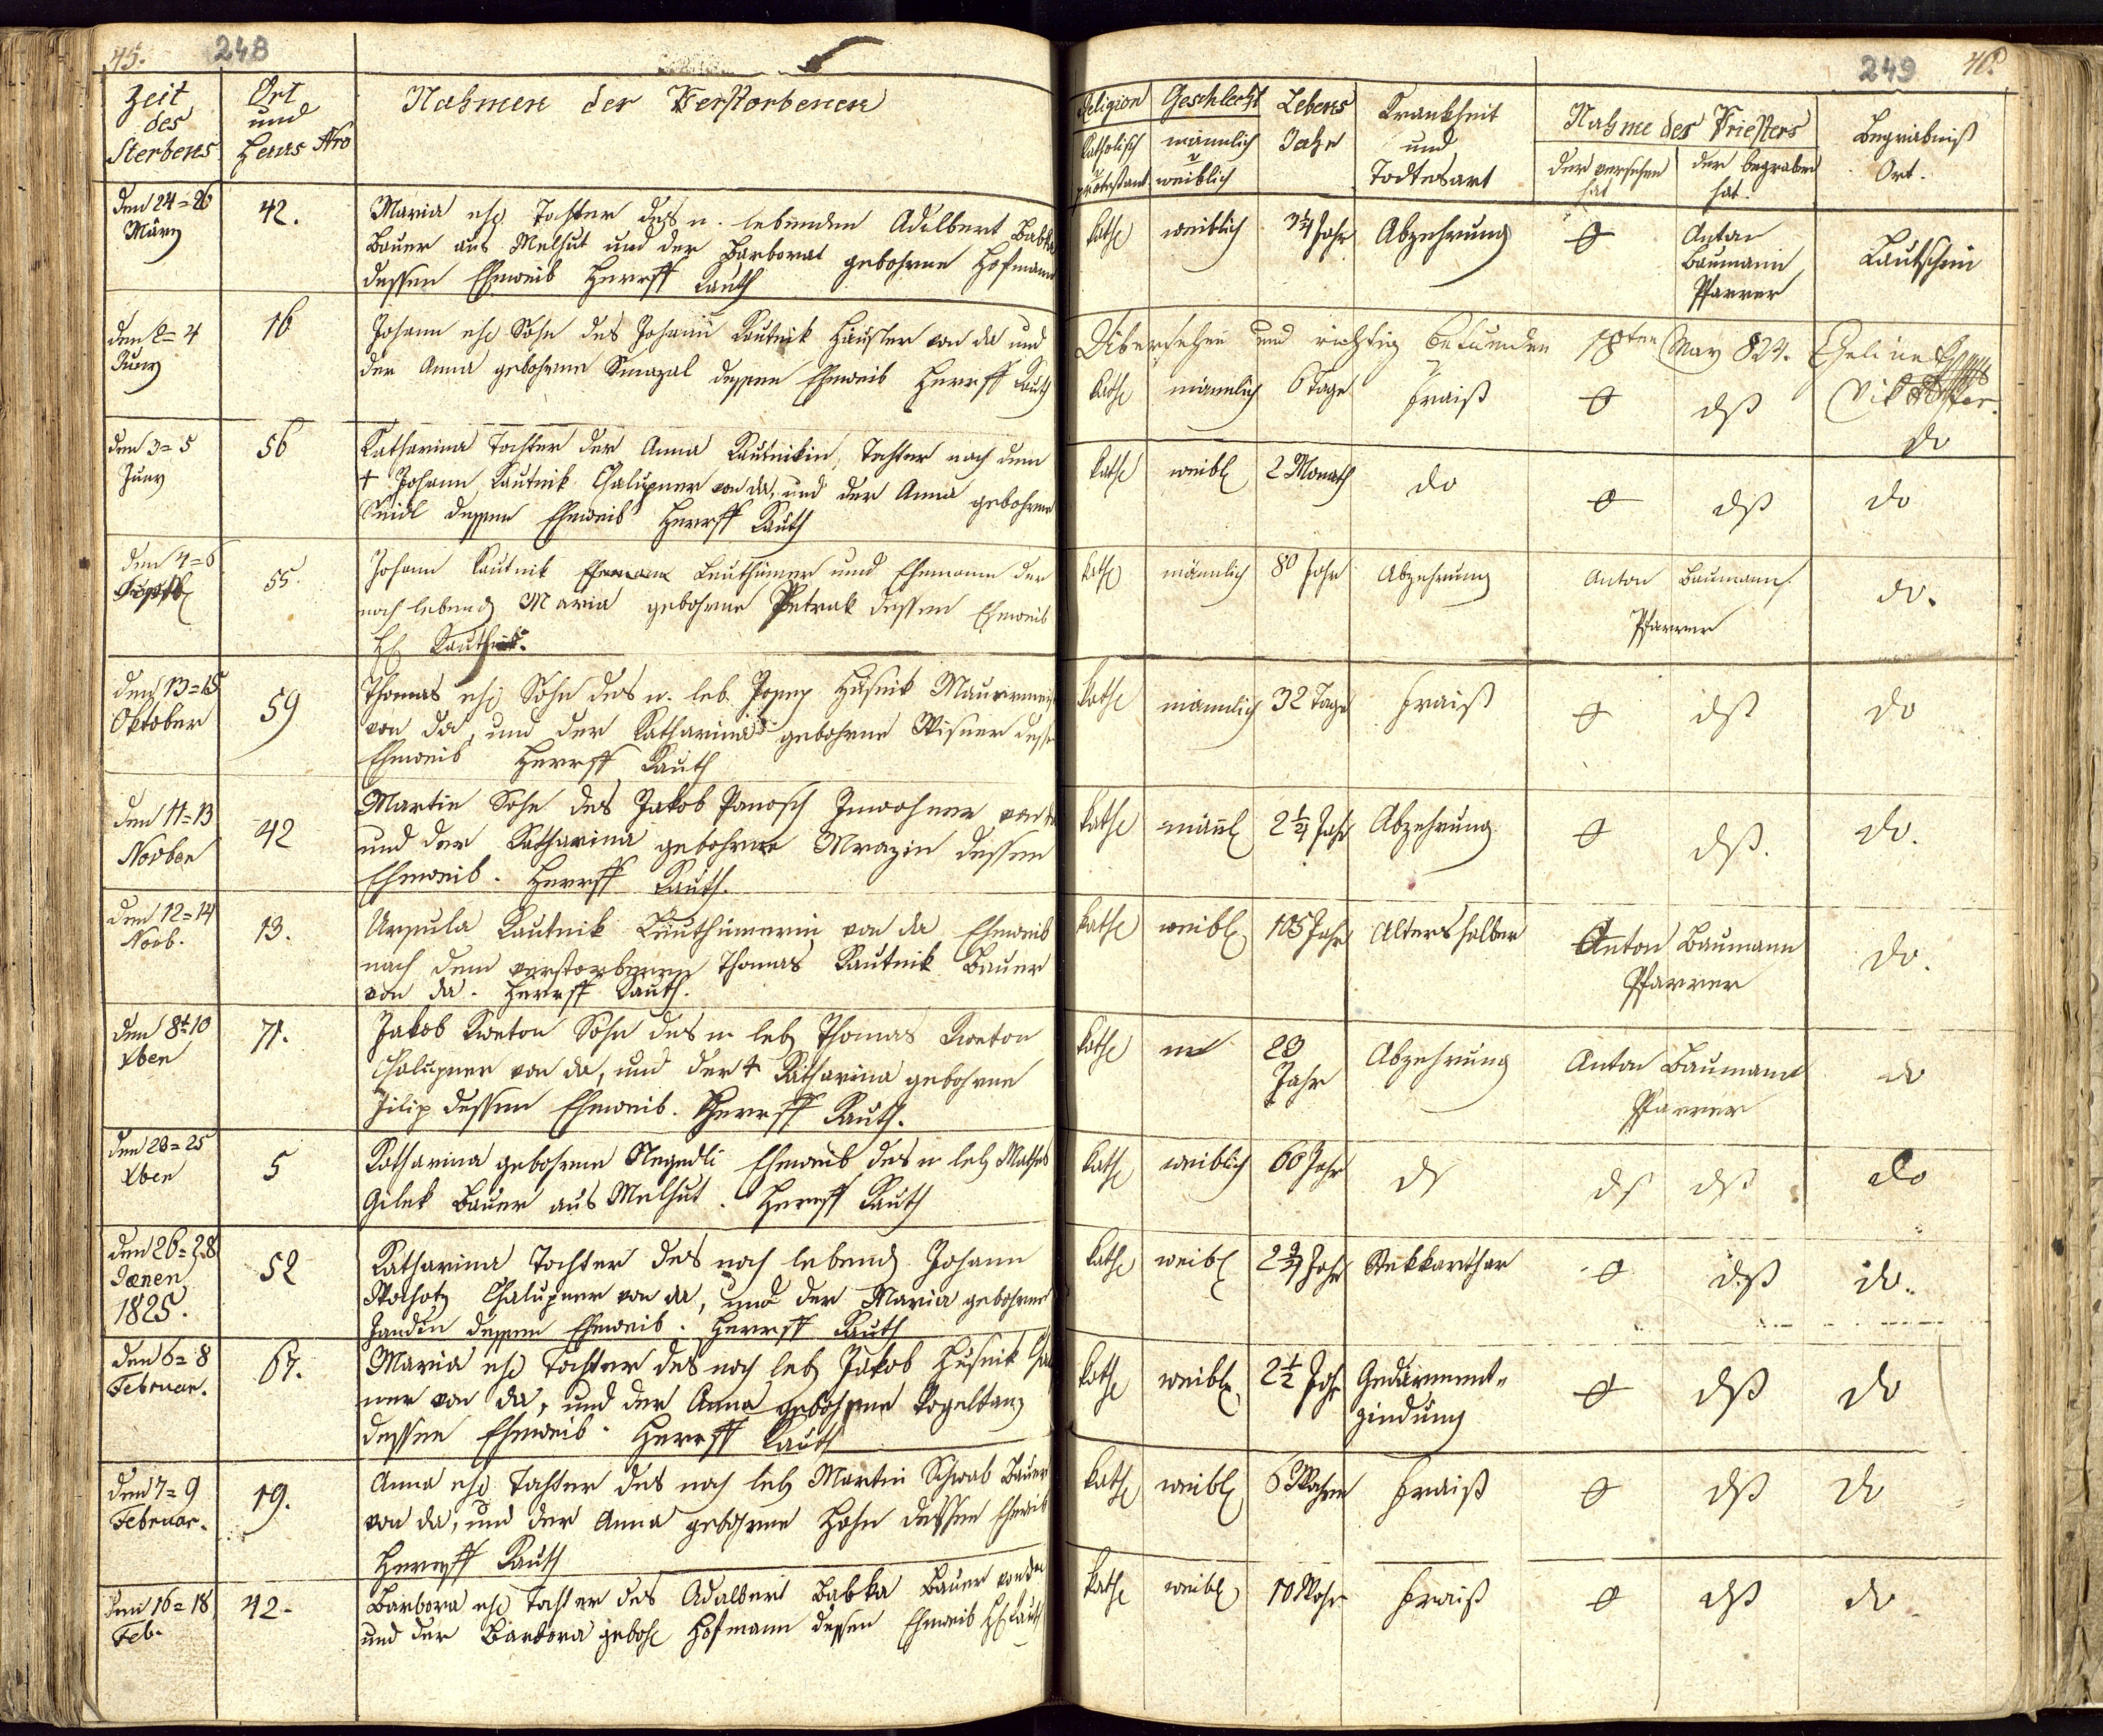 45. 248
Zeit des Sterbens
Ort und Haus Nro
Nahmen der Verstorbenen
den 24=26 März
42.
Maria ehe Tochter des n. lebenden Adalbert Babka
Bauer aus Melhut und der Barbora gebohrne Hofmann
dessen Eheweib Herrsff Kauth
den 2=4 Juny
16
Johann ehe Sohn des Johann Kautnik Häusler von da und
der Anna gebohrne Smazal dessen Eheweib Herrsff Kauth
den 3=5 Juny
56
Katharina Tochter der Anna Kautnikin, Tochter nach dem
† Johann Kautnik Chalupner von da, und der Anna gebohrne
dessen Eheweib Herrsff Kauth
den 4=6
55.
Johann Kautnik Ehemann der
noch lebend Maria gebohrne Petrak dessen Eheweib
den 13=15 Oktober
59
Thomas ehe Sohn des n. leb. Josep Husnik
von da, und der Katharina gebohrne Wisner
Eheweib Herrsff Kauth
den 11=13 Novber
42
Martin Sohn des Jakob Panosch Inwohner von da
und der Katharina gebohrne Mrazin dessen
Eheweib. Herrsff Kauth.
den 12=14 Novb.
13.
Ursula Kautnik von da Eheweib
nach dem verstorbenen Thomas Kautnik Bauer
von da. Herrsff Kauth.
den 8t=10 Xber
71.
Jakob Kweton Sohn des n. leb Thomas Kweton
Chalupner von da, und der † Katharina gebohrne
Filip dessen Eheweib. Herrsff Kauth.
den 23=25 Xber
5
Katharina gebohrne Negedli Eheweib des n leb Mathes
Gilek Bauer aus Melhut. Herrsff Kauth
den 26=28 Jænen 1825.
52
Katharina Tochter des noch lebend Johann
Chalupner von da, und der Maria gebohrne
Jandin dessen Eheweib. Herrsff Kauth
den 6=8 Februar.
67.
Maria ehe Tochter des noch leb Jakob Husnik
ner von da, und der Anna gebohrne Vogeltanz
dessen Eheweib. Herrsff Kauth
den 7=9 Februar.
19.
Anna ehe Tochter des noch leb Martin Schwab Bauer
von da, und der Anna gebohrne Hahn dessen Eheweib
Herrsff Kauth
den 16=18 Feb.
42.
Barbora ehe Tochter des Adalbert Babka Bauer von da
und der Barbora geboh Hofmann dessen Eheweib Kauth
249 46.
Religion
Katholisch protestant
Geschlecht
männlich weiblich
Lebens Jahr
Krankheit und Todtesart
Nahme des Priesters
der versehen hat
der begraben hat.
Begräbniß Ort.
kath weiblich 3¼ Jahr Abzehrung 0 Anton Baumann Pfarrer Lautschim
Übersehen und richtig befunden 18ten May 824.
kath männlich 6 Tage Frais 0 dß do
kath weibl 2 Monath do 0 dß do
kath männlich 80 Jahr Abzehrung Anton Baumann Pfarrer do.
kath männlich 32 Tage Frais 0 dß do
kath männl 2¼ Jahr Abzehrung 0 dß. do.
kath weibl 105 Jahr Altershalber Anton Baumann Pfarrer do.
kath m 23 Jahr Abzehrung Anton Baumann Pfarrer do
kath weiblich 60 Jahr dß dß dß do
kath weibl 2¾ Jahr Stekkarthar 0 dß do.
kath weibl 2½ Jahr Gedärment=
zindung 0 dß do
kath weibl 6 Wochen Frais 0 dß do
kath weibl 10 Woch Frais 0 dß do